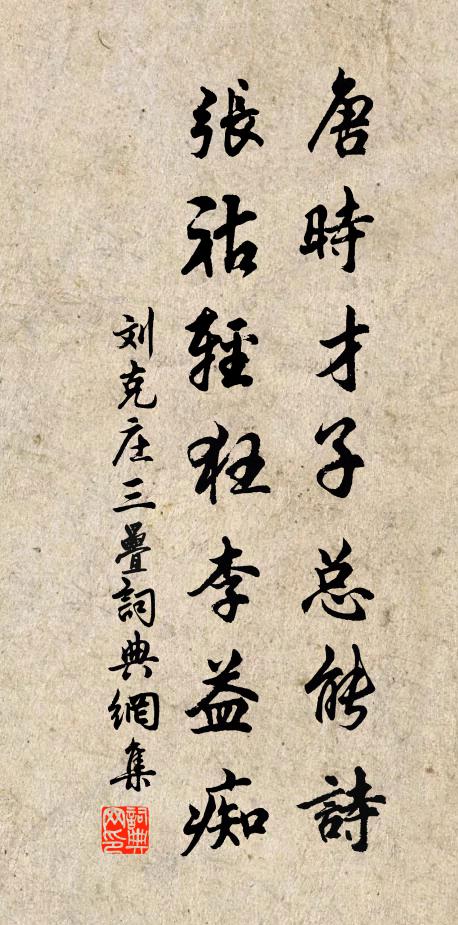 唐時才子总能詩
張祜輕狂李益痴
刘克庄三疊詞典網集
詞典網印